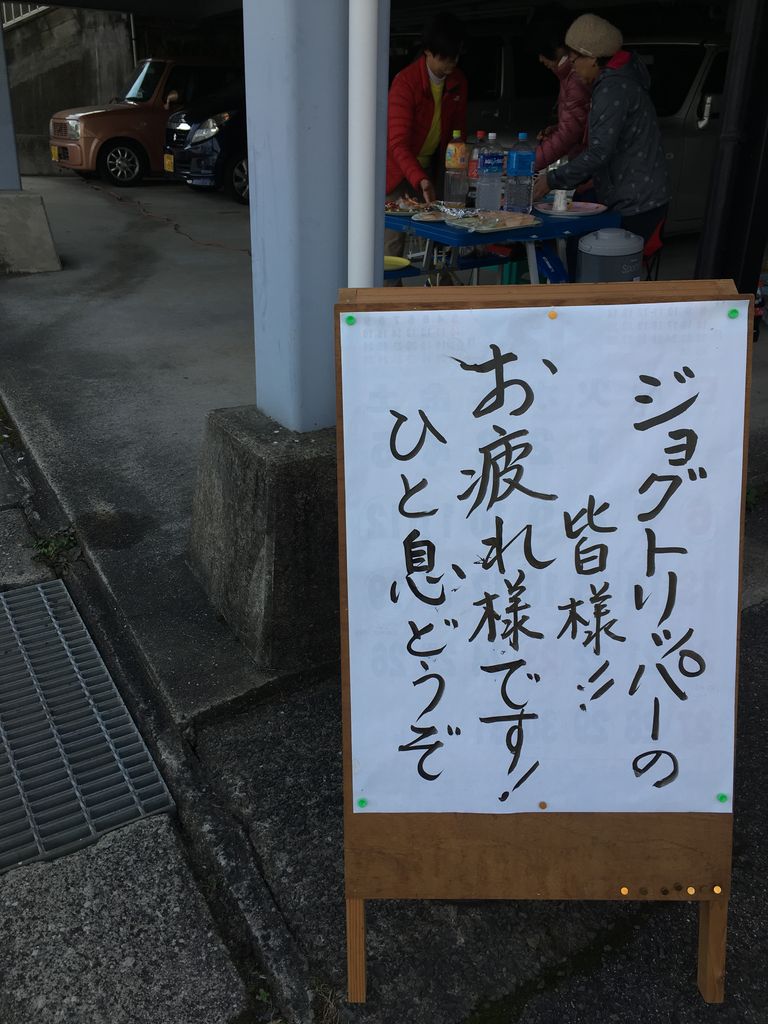 ジョグトリッパーの
皆様!!
お疲れ様です!
ひと息どうぞ